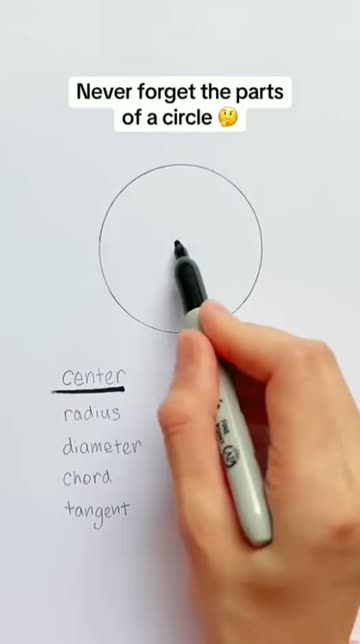 Never forget the parts
of a circle 🤔
center
radius
diameter
chord
tangent
FINE